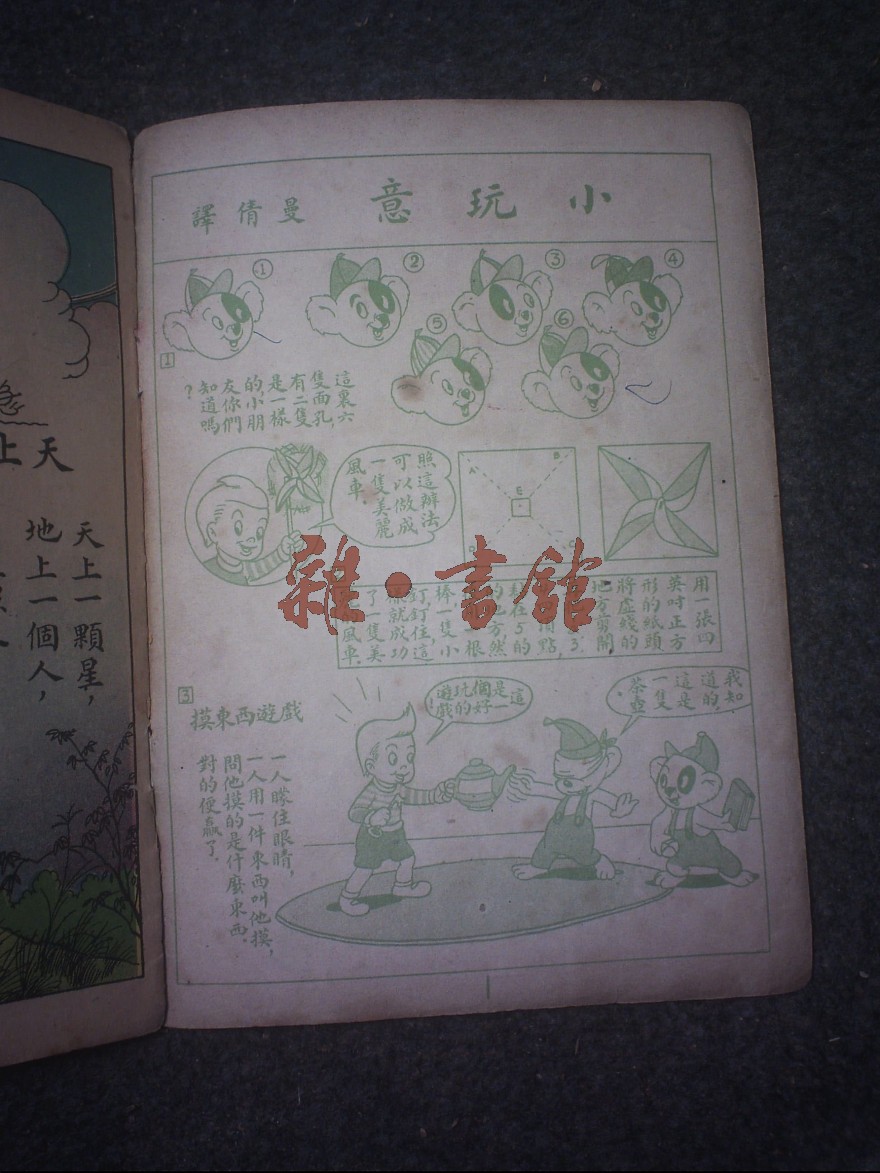 小玩意 曼倩譯
①
②
③
④
⑤
⑥
1
這裏六
隻面孔,
有二隻
是一樣
的小朋
友你們
知道嗎
?
照這辦法
可以做成
一隻美麗
風車.
A
B
E
C
用一張四
英吋正方
形的紙頭
將虛綫的
地方剪開
點,
在5的
的地方,然
根
棒一隻小
釘,釘住這
樣就成功
了一隻美
風車.
3
摸東西遊戲
一人矇住眼睛,
一人用一件東西叫他摸,
問他摸的是什麼東西.
對的便贏了.
這
是一
個好
玩的
遊戲!
我知
道的,
這是
一隻
茶壺.
雜·書館
天上
天上一顆星,
地上一個人,